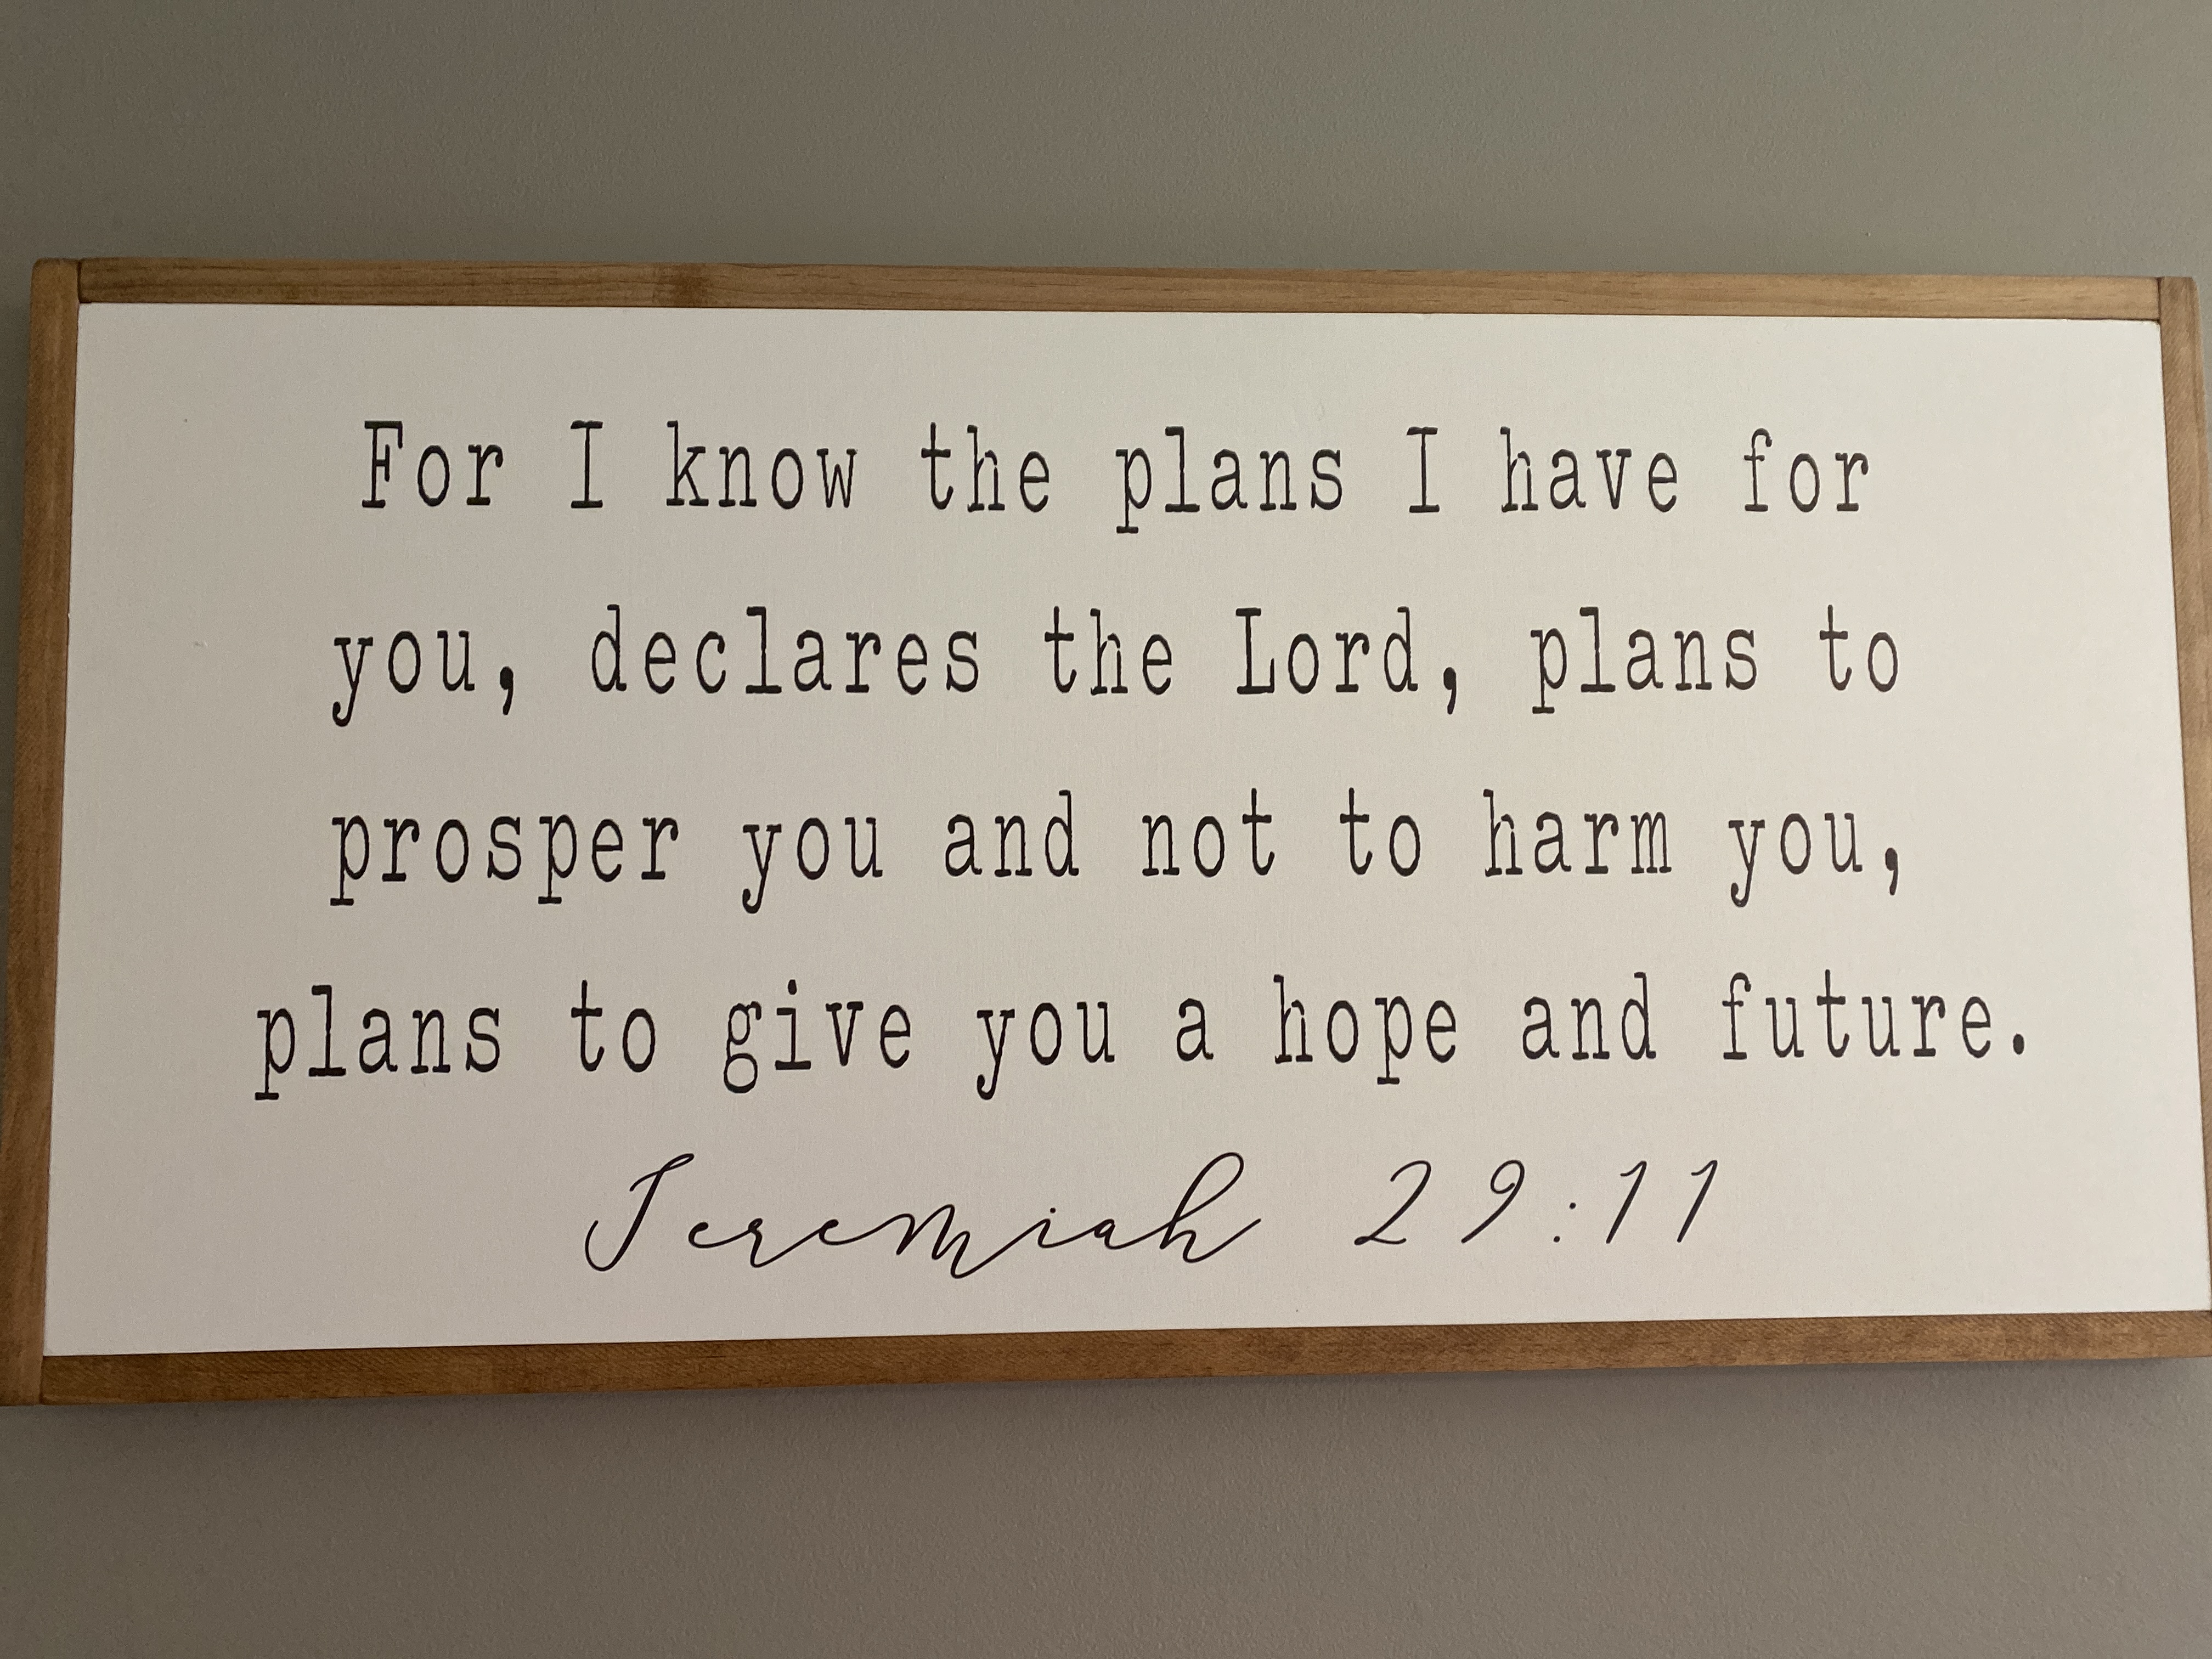 For I know the plans I have for
you, declares the Lord, plans to
prosper you and not to harm you,
plans to give you a hope and future.
Jeremiah 29:11